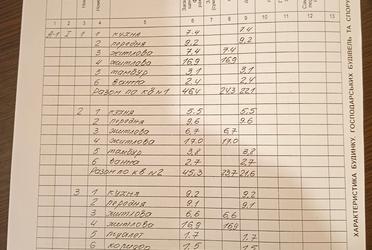 1 2 3 4 5 6 7 8 9 10 11 12 13
A-1 I 1 1 кухня 7.4 7.4
2 передня 9.2 9.2
3 житлова 7.4 7.4
4 житлова 16.9 16.9
5 тамбур 3.1 3.1
6 ванна 2.4 2.4
Разом по кв №1 46.4 24.3 22.1
2 1 кухня 5.5 5.5
2 передня 9.6 9.6
3 житлова 6.7 6.7
4 житлова 17.0 17.0
5 тамбур 3.8 3.8
6 ванна 2.7 2.7
Разом по кв №2 45.3 23.7 21.6
3 1 кухня 9.2 9.2
2 передня 9.1 9.1
3 житлова 6.6 6.6
4 житлова 16.9 16.9
5 туалет 1.7 1.7
6 коридор 1.5 1.5
ХАРАКТЕРИСТИКА БУДИНКУ, ГОСПОДАРСЬКИХ БУДІВЕЛЬ ТА СПОРУ